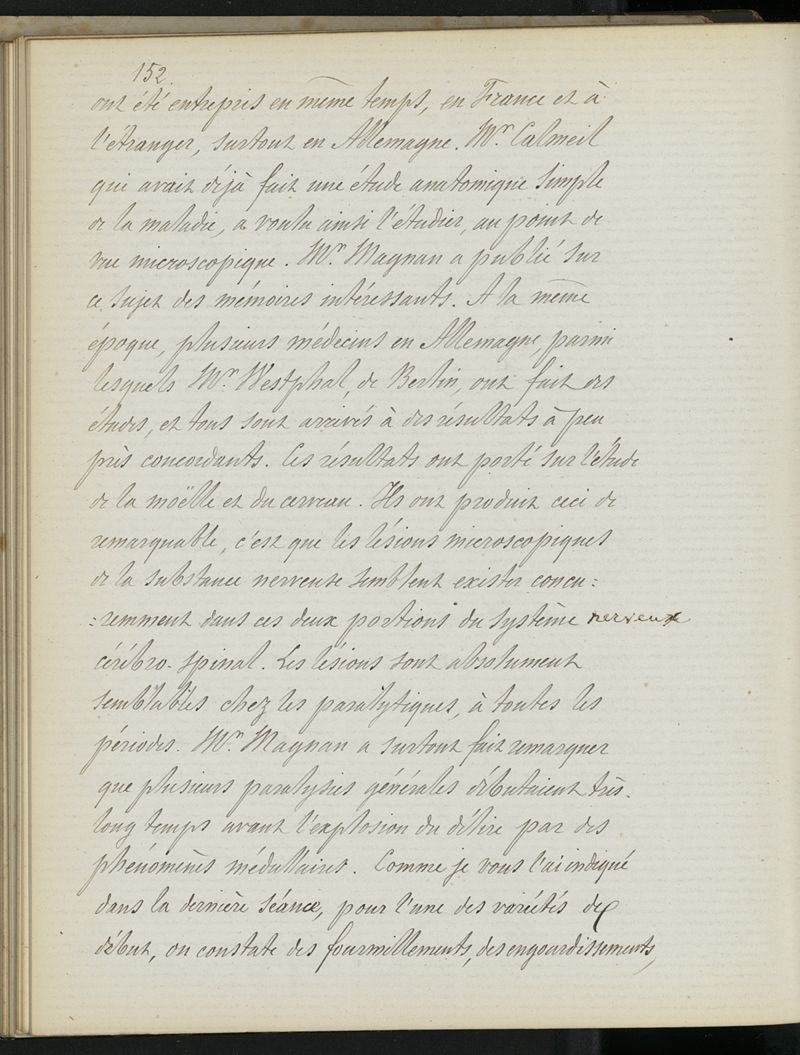 152
ont été entrepris en même temps, en France et à
l'étranger, surtout en Allemagne. Mr Calmeil
qui avait déjà fait une étude anatomique simple
de la maladie, a voulu ainsi l'étudier, au point de
vue microscopique. Mr Magnan a publié sur
ce sujet des mémoires intéressants. A la même
époque, plusieurs médecins en Allemagne, parmi
lesquels Mr Westphal, de Berlin, ont fait des
études, et tous sont arrivés à des résultats à peu
près concordants. Ces résultats ont porté sur l'étude
de la moëlle et du cerveau. Ils ont produit ceci de
remarquable, c'est que les lésions microscopiques
de la substance nerveuse semblent exister concu:
:remment dans ces deux portions du système nerveux
cérébro-spinal. Les lésions sont absolument
semblables chez les paralytiques, à toutes les
périodes. Mr Magnan a surtout fait remarquer
que plusieurs paralysies générales débutaient très-
long temps avant l'explosion du délire par des
phénomènes médullaires. Comme je vous l'ai indiqué
dans la dernière séance, pour l'une des variétés de
début, on constate des fourmillements, des engourdissements,